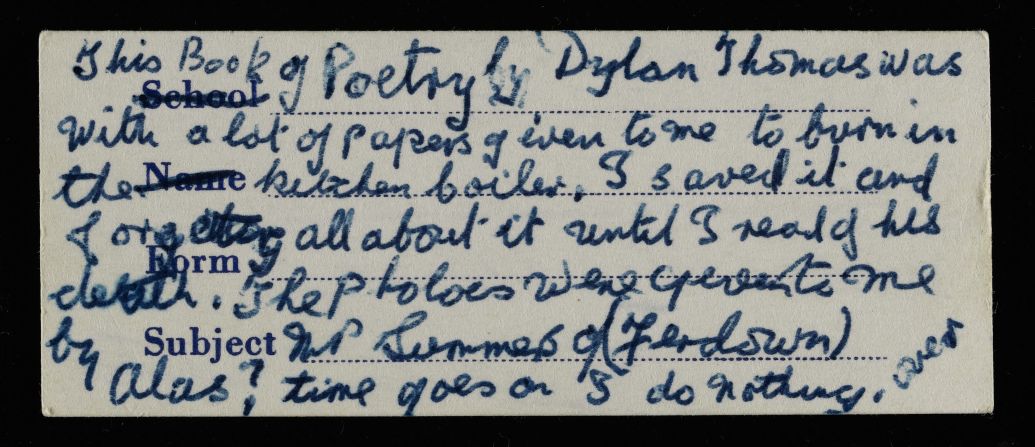 This Book of Poetry by Dylan Thomas was
School
with a lot of papers given to me to burn in
the Name kitchen boiler. I saved it and
forg all about it until I read of his
Form
death. The Photoes were given to me
by Subject Mr Summers of (Ferdown)
Alas! time goes on I do nothing. over